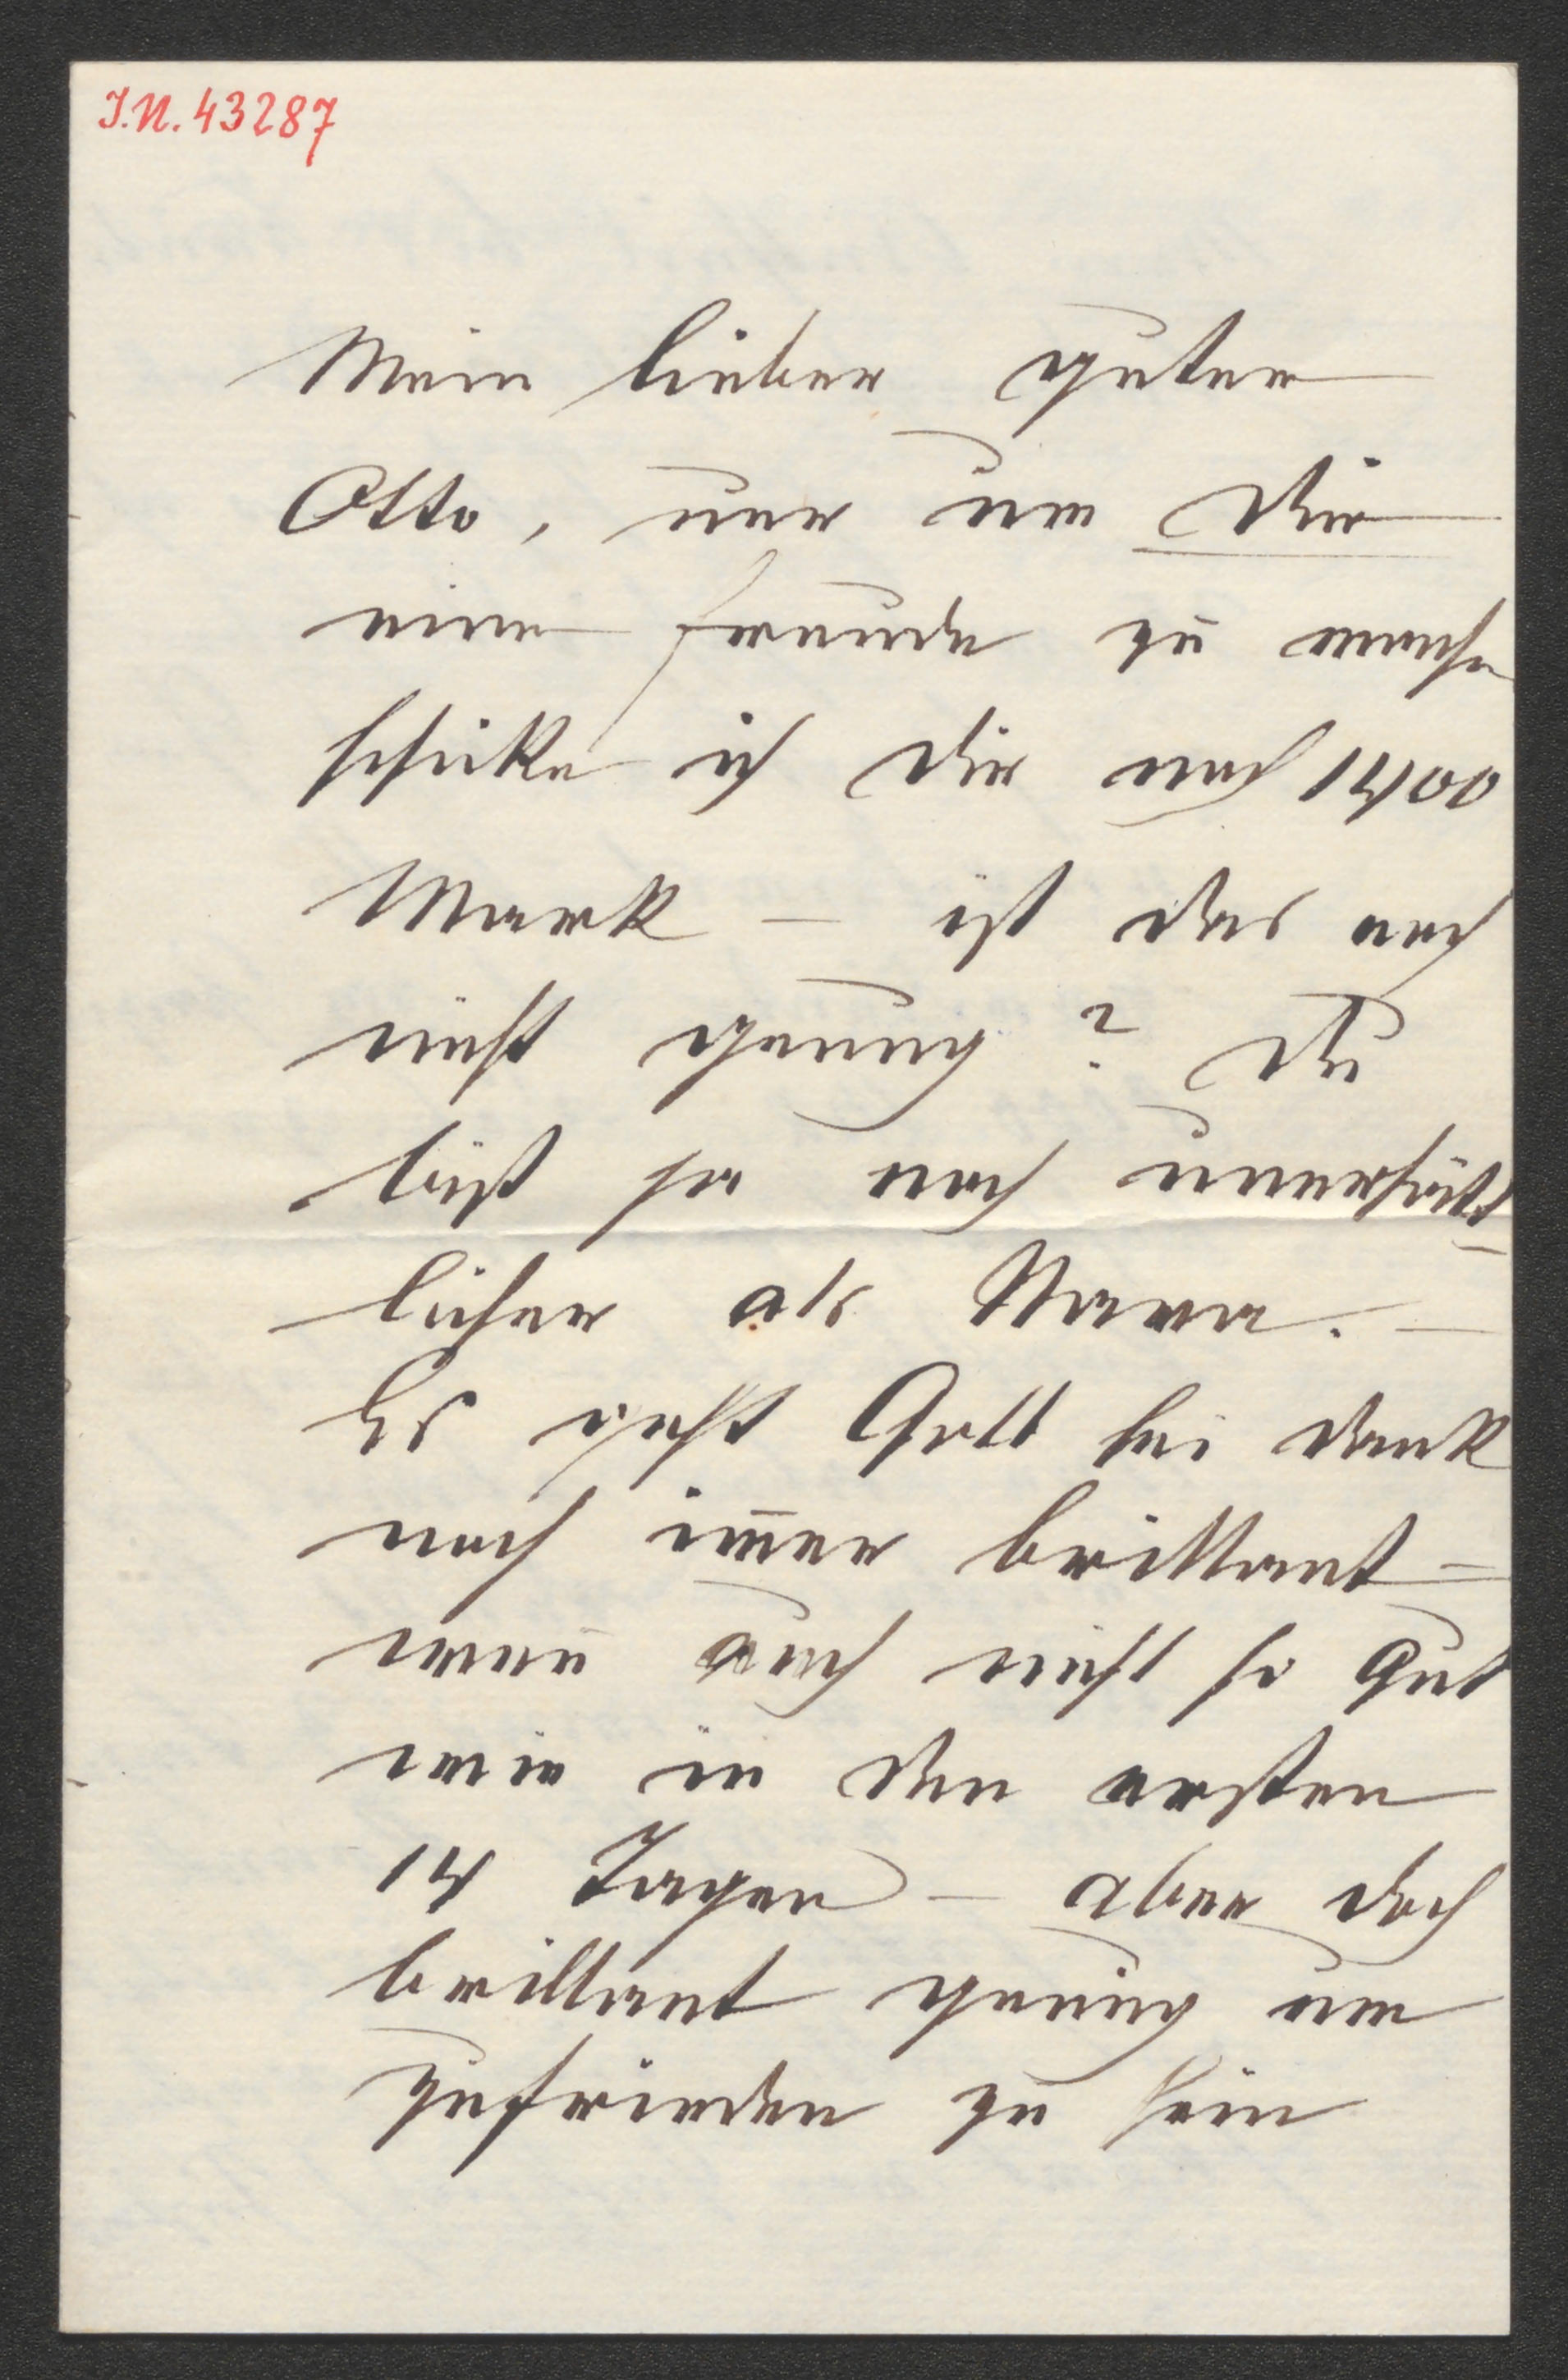 J.N. 43287
Mein lieber guter
Otto, nur um Dir
eine Freude zu mache
schicke ich Dir noch 1400
Mark – ist das noch
nicht genug? Du
bist ja noch unersätt-
licher als Mara. –
Es geht Gott sei dank
noch im̅er brillant –
wen̅ auch nicht so gut
wie in den ersten
14 Tagen – aber doch
brillant genug um
zufrieden zu sein